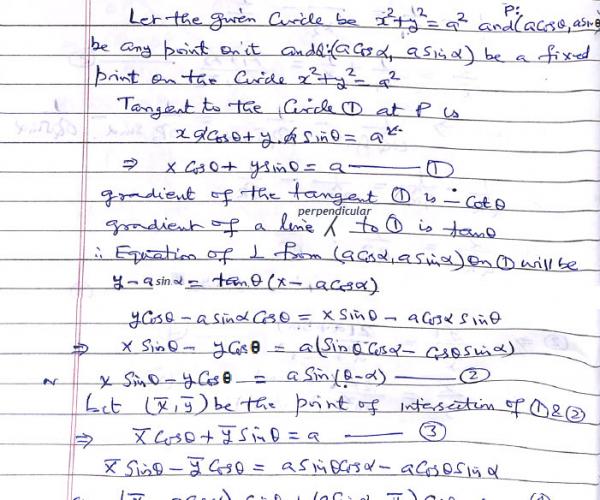 Let the given Circle be x²+y²=a² and P:(a Cosθ, a Sinθ)
be any point on it and Q:(a Cosα, a Sinα) be a fixed
print on the Circle x²+y²=a²
Tangent to the Circle ① at P is
x a Cosθ + y. a Sinθ = a²
⇒ x Cosθ + y Sinθ = a —— ①
gradient of the tangent ① is - Cotθ
gradient of a line perpendicular to ① is tanθ
∴ Equation of ⊥ from (a Cosα, a Sinα) on ① will be
y - a sinα = tanθ (x - a Cosα)
y Cosθ - a Sinα Cosθ = x Sinθ - a Cosα Sinθ
⇒ x Sinθ - y Cosθ = a (Sinθ Cosα - Cosθ Sinα)
~ x Sinθ - y Cosθ = a Sin(θ-α) —— ②
Let (x̄, ȳ) be the point of intersection of ① & ②
⇒ x̄ Cosθ + ȳ Sinθ = a —— ③
x̄ Sinθ - ȳ Cosθ = a Sinθ Cosα - a Cosθ Sinα